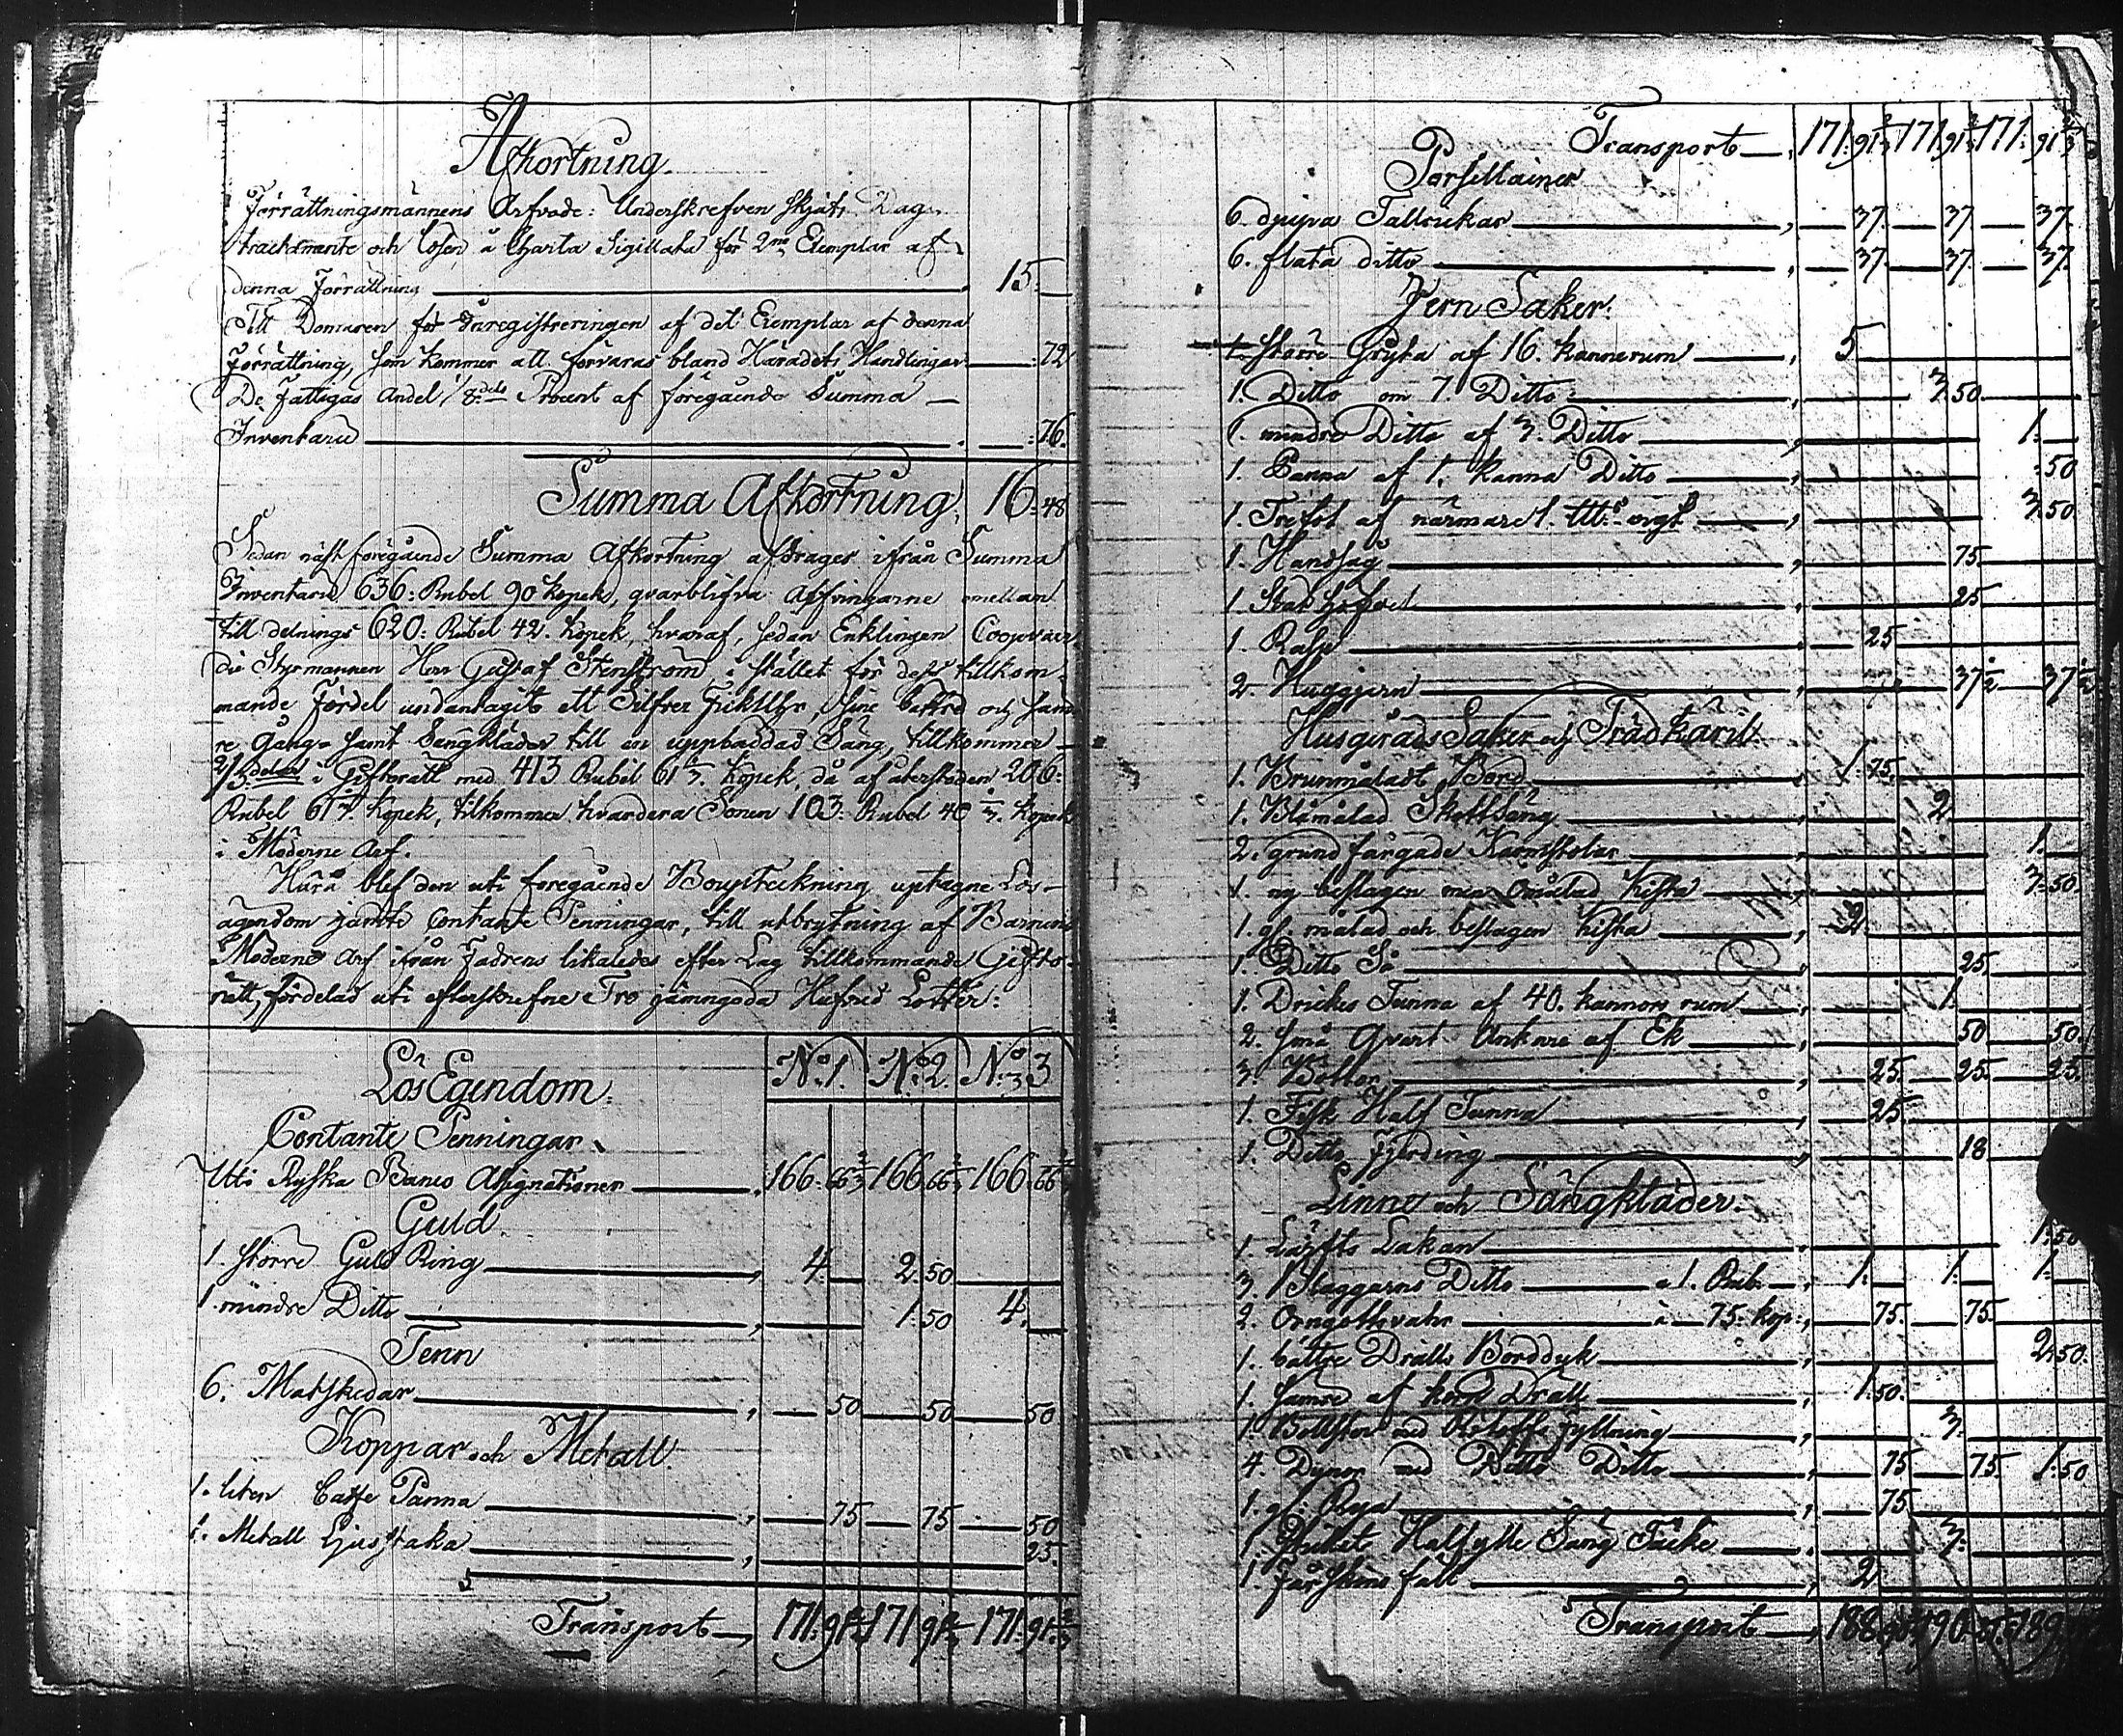 Afkortning
Förrättningsmännens Arfvode: Underskrefven Skjuts Dag
tracktmente och Lösen å Charta Sigillata för 2ne Exemplar af
denna Förrättning 15.
Till Domaren för Inregistreringen af det Exemplar af denna
Förrättning, som kommer att förvaras bland Häradets Handlingar 72
De Fattigas Andel 1/8dels Procent af föregående Summa
Inventarii 76.
Summa Afkortning, 16.48
Sedan näst föregående Summa Afkortning afdrages ifrån Summa
Inventarii 636: Rubel 90 Kopek, qvarblifva Arfvingarne emellan
till delnings 620: Rubel 42. Kopek, hvaraf, sedan Enklingen Coopvaer
die Styrmannen Herr Gustaf Stenström, i stället för dess tillkom
mande Fördel undantagit ett Silfver Fickur, sine bättre och säm
re Gång- samt Sängkläder till en uppbäddad Säng, tillkommer
2/3delar i Giftorätt med 413 Rubel 61 1/3. Kopek, då af återstoden 206:
Rubel 61 Kopek, tilkommer hvardera Sonen 103: Rubel 40 1/3. Kopek
i Möderne Arf.
Härå blef den uti föregående Bouptekning uptagne Lös-
ägendom jämte Contante Penningar, till utbrytning af Barnens
Möderne Arf ifrån Fadrens likaledes efter Lag tillkommande Gifto-
rätt, fördelad uti efterskrefne Tre jämngoda Hufvud Lotter:
LösEgendom. No. 1. No. 2. No. 3
Contante Penningar
Uti Ryska Banco Assignationer 166. 66 2/3 166. 66 2/3 166. 66
Guld.
1. större Guld Ring 4. 2.50
1. mindre Ditto 1.50 4.
Tenn
6. Matskedar 50 50 50
Koppar och Metall.
1. liten Caffe Panna 75 75 50
1. Metall Ljusstaka 25.
Transport 171. 91 2/3 171. 91 2/3 171. 91 2/3
Transport 171. 91 2/3 171. 91 2/3 171. 91 2/3
Porsellainer
6. djupa Tallrickar 37. 37. 37.
6. flata ditto 37. 37. 37.
Jern Saker:
1. större Gryta af 16. kannerum 5
1. Ditto om 7. Ditto 3.50
1. mindre Ditto af 3. Ditto 1.
1. Panna af 1. kanna Ditto .50
1. Trefot af närmare 1. 3.50
1. Handsåg 75.
1 25
1. 25
2. Huggjern 37 1/2 37 1/2
Husgeråds Saker och Trädkäril.
1. Brunmåladt Bord 1.75.
1. Blåmålad Skottsäng 2.
2. grundfärgade Karmstolar 1.
1. ny beslagen men omålad Kista 3.50.
1. gl. målad och beslagen Kista 2.
1. Ditto Så 25
1. Drickes Tunna af 40. kannors rum 1.
2. små Qvart Ankare af Ek 50 50.
3. Böttor 25 25 25.
1. Fisk Half Tunna 25
1. Ditto Fjerding 18
Linne och Sängkläder.
1. Lärfts Lakan 1.50
3. Blaggarns Ditto a 1. Rub. 1. 1. 1.
2. Örngottsvahr à 75. kop: 75. 75.
1. bättre Dralls Borddyk 2.50.
1. sämre af Drall 1.50.
1. Bollster med fyllning 3.
4. Dynor med Ditto Ditto 75 75 1.50
1. gl. Rya 75
1. Säng Täcke 3.
1. Fårskins fäll 2
Transport 188. 190. 189.